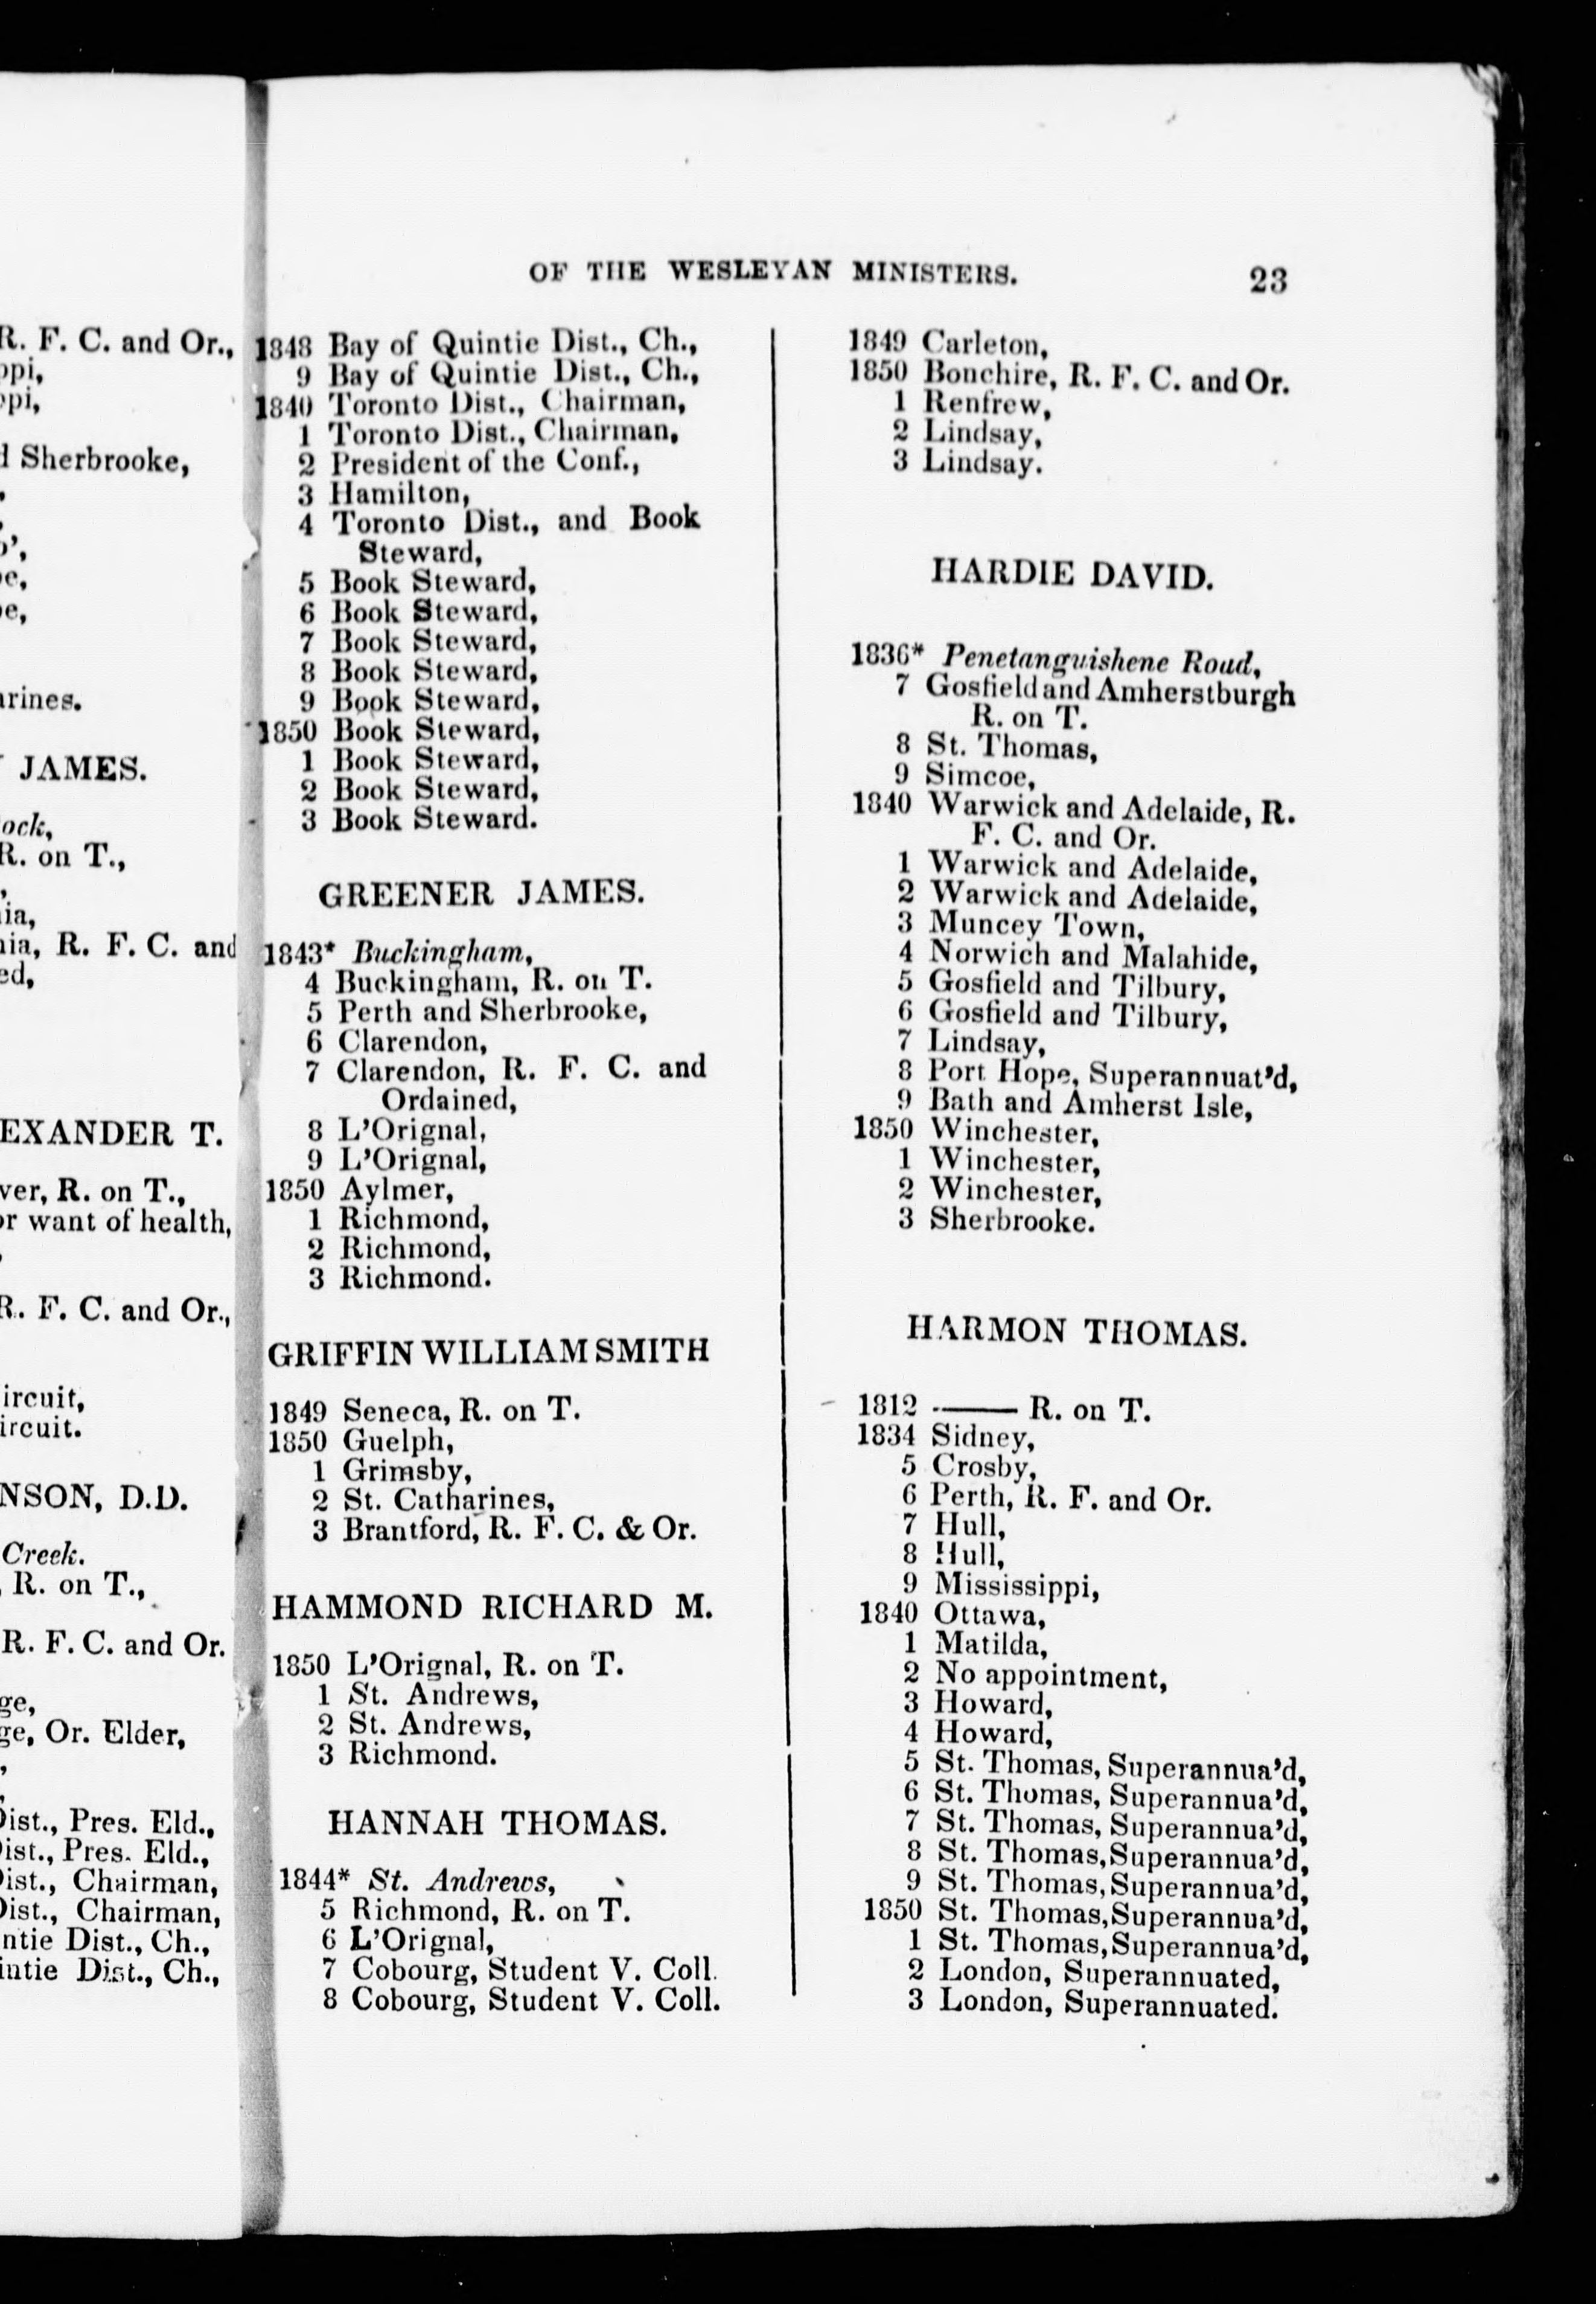 R. F. C. and Or.,
Sherbrooke,
JAMES.
R. on T.,
R. F. C. and
EXANDER T.
R. on T.,
want of health,
R. F. C. and Or.,
NSON, D.D.
Creek.
R. on T.,
R. F. C. and Or.
Or. Elder,
Pres. Eld.,
Pres. Eld.,
Chairman,
Chairman,
Dist., Ch.,
Dist., Ch.,
OF THE WESLEYAN MINISTERS. 23
1848 Bay of Quintie Dist., Ch.,
9 Bay of Quintie Dist., Ch.,
1840 Toronto Dist., Chairman,
1 Toronto Dist., Chairman,
2 President of the Conf.,
3 Hamilton,
4 Toronto Dist., and Book
Steward,
5 Book Steward,
6 Book Steward,
7 Book Steward,
8 Book Steward,
9 Book Steward,
1850 Book Steward,
1 Book Steward,
2 Book Steward,
3 Book Steward.
GREENER JAMES.
1843* Buckingham,
4 Buckingham, R. on T.
5 Perth and Sherbrooke,
6 Clarendon,
7 Clarendon, R. F. C. and
Ordained,
8 L'Orignal,
9 L'Orignal,
1850 Aylmer,
1 Richmond,
2 Richmond,
3 Richmond.
GRIFFIN WILLIAM SMITH
1849 Seneca, R. on T.
1850 Guelph,
1 Grimsby,
2 St. Catharines,
3 Brantford, R. F. C. & Or.
HAMMOND RICHARD M.
1850 L'Orignal, R. on T.
1 St. Andrews,
2 St. Andrews,
3 Richmond.
HANNAH THOMAS.
1844* St. Andrews,
5 Richmond, R. on T.
6 L'Orignal,
7 Cobourg, Student V. Coll.
8 Cobourg, Student V. Coll.
1849 Carleton,
1850 Bonchire, R. F. C. and Or.
1 Renfrew,
2 Lindsay,
3 Lindsay.
HARDIE DAVID.
1836* Penetanguishene Road,
7 Gosfield and Amherstburgh
R. on T.
8 St. Thomas,
9 Simcoe,
1840 Warwick and Adelaide, R.
F. C. and Or.
1 Warwick and Adelaide,
2 Warwick and Adelaide,
3 Muncey Town,
4 Norwich and Malahide,
5 Gosfield and Tilbury,
6 Gosfield and Tilbury,
7 Lindsay,
8 Port Hope, Superannuat'd,
9 Bath and Amherst Isle,
1850 Winchester,
1 Winchester,
2 Winchester,
3 Sherbrooke.
HARMON THOMAS.
1812 —— R. on T.
1834 Sidney,
5 Crosby,
6 Perth, R. F. and Or.
7 Hull,
8 Hull,
9 Mississippi,
1840 Ottawa,
1 Matilda,
2 No appointment,
3 Howard,
4 Howard,
5 St. Thomas, Superannua'd,
6 St. Thomas, Superannua'd,
7 St. Thomas, Superannua'd,
8 St. Thomas, Superannua'd,
9 St. Thomas, Superannua'd,
1850 St. Thomas, Superannua'd,
1 St. Thomas, Superannua'd,
2 London, Superannuated,
3 London, Superannuated.